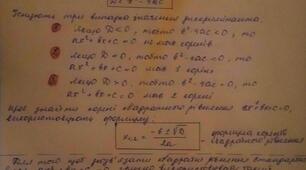 D = b² - 4ac
Існують три випадки значення дискримінанта.
① Якщо D < 0, тобто b² - 4ac < 0, то
ax² + bx + c = 0 не має коренів
② Якщо D = 0, тобто b² - 4ac = 0, то
ax² + bx + c = 0 має 1 корінь
③ Якщо D > 0, тобто b² - 4ac > 0, то
ax² + bx + c = 0 має 2 корені
Щоб знайти корені квадратного рівняння ax² + bx + c = 0,
використовують формулу:
x₁,₂ = -b ± √D / 2a - формула коренів
квадратного рівняння
Для того щоб розв'язати квадратне рівняння стандартного